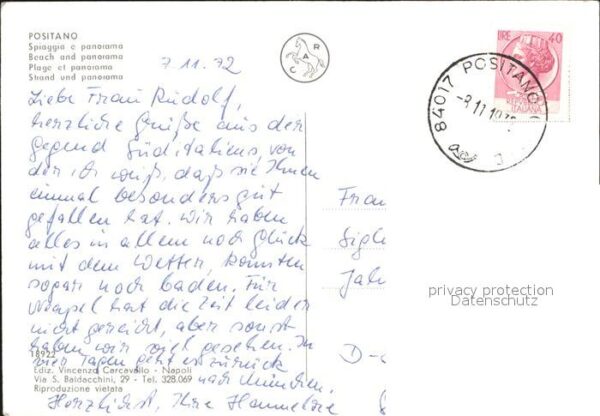 POSITANO
Spiaggia e panorama
Beach and panorama
Plage et panorama
Strand und panorama
7.11.72
CAR
LIRE 40
84017 POSITANO
-8.11.197
Liebe Frau Rudolf,
herzliche Grüße aus der
Gegend Süditaliens von
der ich weiß, daß sie Ihnen
einmal besonders gut
gefallen hat. Wir haben
alles in allem noch Glück
mit dem Wetter, konnten
sogar noch baden. Für
Neapel hat die Zeit leider
nicht gereicht, aber sonst
haben wir viel gesehen. In
vier Tagen geht es zurück
nach München.
Herzlichst, Ihre Hannelore
Frau
Sigl
Jah
D-
privacy protection
Datenschutz
18922
Ediz. Vincenzo Carcavallo - Napoli
Via S. Baldacchini, 29 - Tel. 328.069
Riproduzione vietata